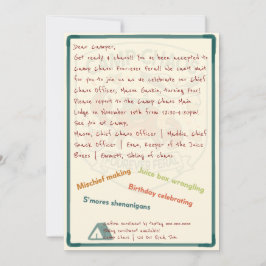 Dear Camper,
Get ready 4 chaos! You've been accepted to
Camp Chaos: Four-ever Feral! We can't wait
for you to join us as we celebrate our Chief
Chaos Officer, Mason Gaskin, turning Four!
Please report to the Camp Chaos Main
Lodge on November 10th from 12:30-3:30pm!
See You at Camp,
Mason, Chief Chaos Officer | Maddie, Chief
Snack Officer | Evan, Keeper of the Juice
Boxes | Emmett, Sibling of chaos
Mischief making
Juice box wrangling
Birthday celebrating
S'mores shenanigans
Confirm enrollment by texting
enrollment available!
Camp Chaos |